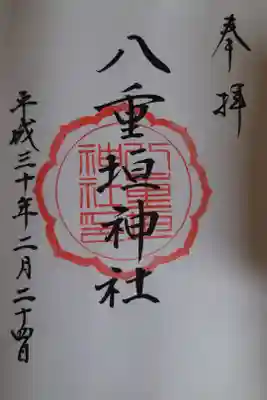 奉拝
八重垣神社
平成三十年二月二十四日
八重垣神社印